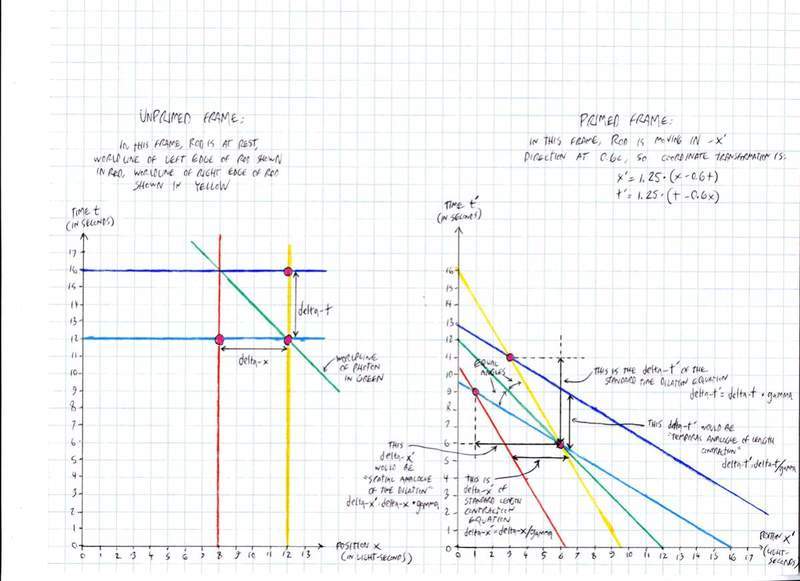 UNPRIMED FRAME:
IN THIS FRAME, ROD IS AT REST,
WORLDLINE OF LEFT EDGE OF ROD SHOWN
IN RED, WORLDLINE OF RIGHT EDGE OF ROD
SHOWN IN YELLOW
TIME t
(IN SECONDS)
17
16
15
14
13
12
11
10
9
8
7
6
5
4
3
2
1
0
delta-t
delta-x
WORLDLINE
OF PHOTON
IN GREEN
0 1 2 3 4 5 6 7 8 9 10 11 12 13
POSITION X
(IN LIGHT-SECONDS)
PRIMED FRAME:
IN THIS FRAME, ROD IS MOVING IN -X'
DIRECTION AT 0.6c, SO COORDINATE TRANSFORMATION IS:
x' = 1.25·(x-0.6t)
t' = 1.25·(t-0.6x)
TIME t'
(IN SECONDS)
16
15
14
13
12
11
10
9
8
7
6
5
4
3
2
1
0
EQUAL
ANGLES
THIS IS THE delta-t' OF THE
STANDARD TIME DILATION EQUATION
delta-t' = delta-t · gamma
THIS delta-t' WOULD BE
"TEMPORAL ANALOGUE OF LENGTH
CONTRACTION"
delta-t' = delta-t/gamma
THIS
delta-x'
WOULD BE
"SPATIAL ANALOGUE
OF TIME DILATION"
delta-x' = delta-x · gamma
THIS IS
delta-x' OF
STANDARD LENGTH
CONTRACTION
EQUATION
delta-x' = delta-x/gamma
0 1 2 3 4 5 6 7 8 9 10 11 12 13 14 15 16 17
POSITION X'
(LIGHT-
SECONDS)